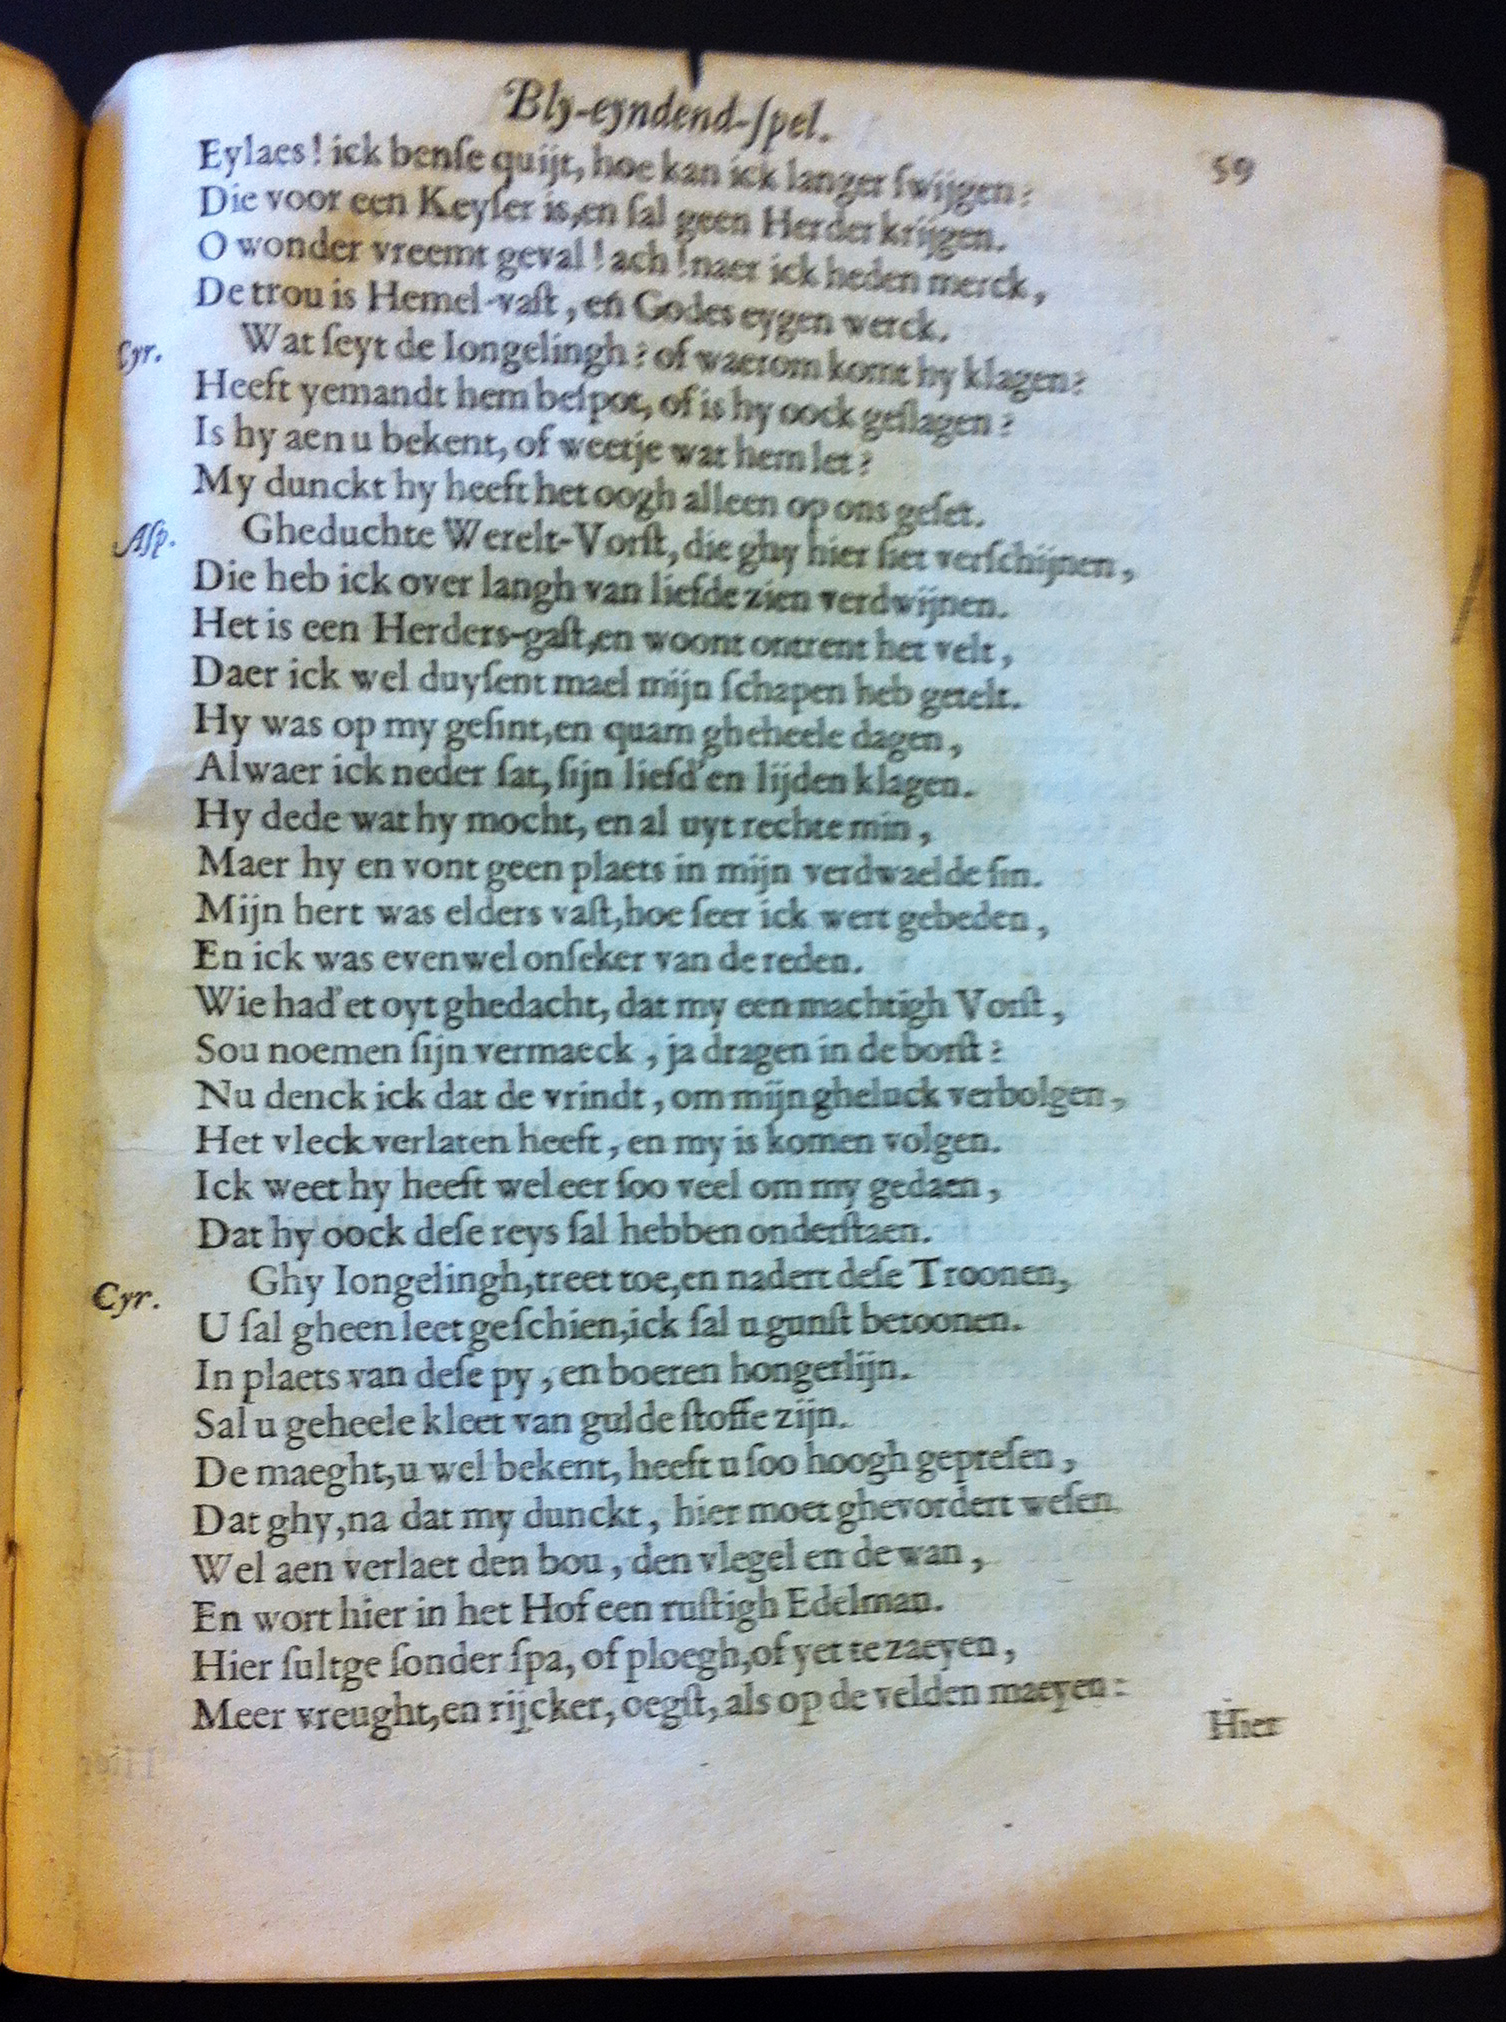 Bly-eyndend-ſpel.
59
Eylaes! ick benſe quijt, hoe kan ick langer ſwijgen?
Die voor een Keyſer is, en ſal geen Herder krijgen.
O wonder vreemt geval! ach! naer ick heden merck,
De trou is Hemel-vaſt, eñ Godes eygen werck.
Cyr. Wat ſeyt de Iongelingh? of waerom komt hy klagen?
Heeft yemandt hem beſpot, of is hy oock geſlagen?
Is hy aen u bekent, of weetje wat hem let?
My dunckt hy heeft het oogh alleen op ons geſet.
Aſp. Gheduchte Werelt-Vorſt, die ghy hier ſiet verſchijnen,
Die heb ick over langh van liefde zien verdwijnen.
Het is een Herders-gaſt, en woont ontrent het velt,
Daer ick wel duyſent mael mijn ſchapen heb getelt.
Hy was op my geſint, en quam gheheele dagen,
Alwaer ick neder ſat, ſijn liefd' en lijden klagen.
Hy dede wat hy mocht, en al uyt rechte min,
Maer hy en vont geen plaets in mijn verdwaelde ſin.
Mijn hert was elders vaſt, hoe ſeer ick wert gebeden,
En ick was evenwel onſeker van de reden.
Wie had' et oyt ghedacht, dat my een machtigh Vorſt,
Sou noemen ſijn vermaeck, ja dragen in de borſt?
Nu denck ick dat de vrindt, om mijn gheluck verbolgen,
Het vleck verlaten heeft, en my is komen volgen.
Ick weet hy heeft wel eer ſoo veel om my gedaen,
Dat hy oock deſe reys ſal hebben onderſtaen.
Cyr. Ghy Iongelingh, treet toe, en nadert deſe Troonen,
U ſal gheen leet geſchien, ick ſal u gunſt betoonen.
In plaets van deſe py, en boeren hongerlijn.
Sal u geheele kleet van gulde ſtoffe zijn.
De maeght, u wel bekent, heeft u ſoo hoogh gepreſen,
Dat ghy, na dat my dunckt, hier moet ghevordert weſen.
Wel aen verlaet den bou, den vlegel en de wan,
En wort hier in het Hof een ruſtigh Edelman.
Hier ſultge ſonder ſpa, of ploegh, of yet te zaeyen,
Meer vreught, en rijcker, oegſt, als op de velden maeyen:
Hier